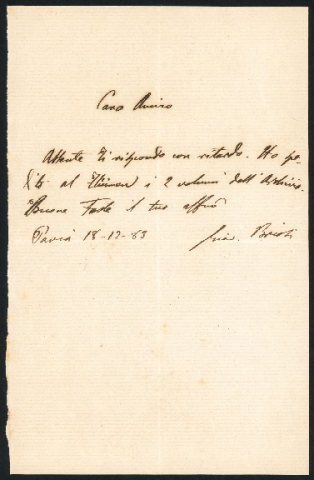 Caro Amico
Assente ti rispondo con ritardo. Ho spe-
dito al i 2 volumi dell'Archivio.
Buone Feste il tuo affmo
Pavia 18-12-83